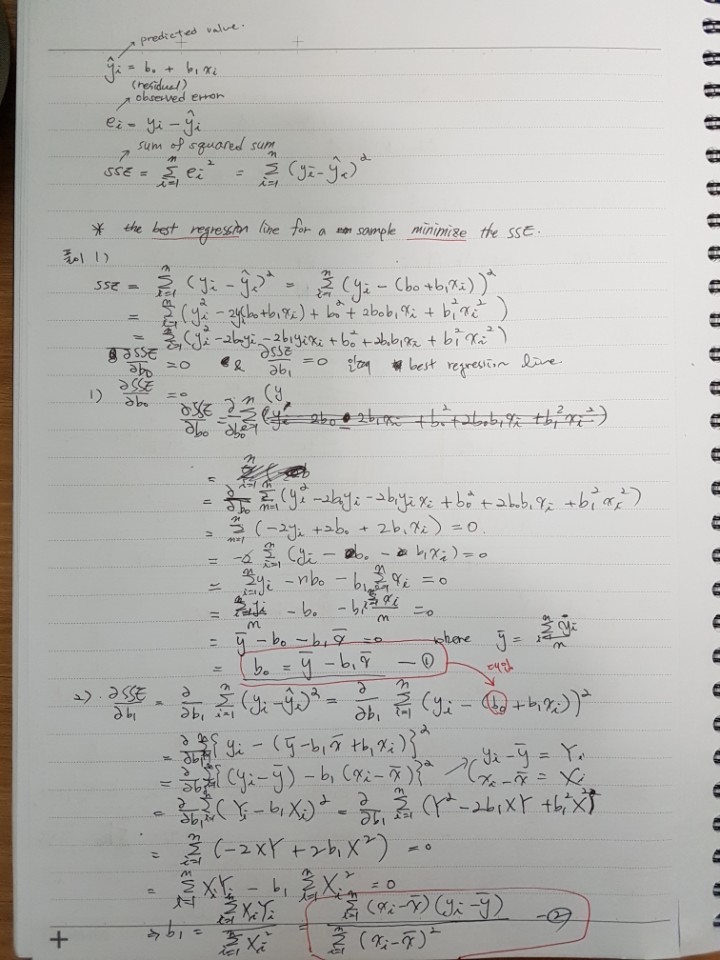 predicted value.
ŷi = b₀ + b₁xi
(residual)
observed error
ei = yi - ŷi
sum of squared sum
SSE = Σ_{i=1}^{n} ei² = Σ_{i=1}^{n} (yi - ŷi)²
* the best regression line for a sample minimize the SSE.
풀이 1)
SSE = Σ_{i=1}^{n} (yi - ŷi)² = Σ_{i=1}^{n} (yi - (b₀+b₁xi))²
= Σ_{i=1}^{n} (yi² - 2yi(b₀+b₁xi) + b₀² + 2b₀b₁xi + b₁²xi²)
= Σ_{i=1}^{n} (yi² - 2b₀yi - 2b₁yixi + b₀² + 2b₀b₁xi + b₁²xi²)
∂SSE/∂b₀ = 0 & ∂SSE/∂b₁ = 0 best regression line.
1) ∂SSE/∂b₀ = 0 (y
∂SSE/∂b₀ = ∂/∂b₀ Σ^{n} (yi² - 2b₀ 2b₁xi + b₀² + 2b₀b₁xi + b₁²xi²)
= Σ_{i=1}^{n}
= ∂/∂b₀ Σ_{n=1}^{n} (yi² - 2b₀yi - 2b₁yixi + b₀² + 2b₀b₁xi + b₁²xi²)
= Σ_{n=1}^{n} (-2yi + 2b₀ + 2b₁xi) = 0.
= -2 Σ_{i=1}^{n} (yi - b₀ - b₁xi) = 0
= Σ_{i=1}^{n} yi - nb₀ - b₁ Σ^{n} xi = 0
= Σ_{i=1}^{n} yi/n - b₀ - b₁ Σ_{i=1}^{n} xi/n = 0
= ȳ - b₀ - b₁x̄ = 0 where ȳ = Σ_{i=1}^{n} yi/n
= b₀ = ȳ - b₁x̄ — ① 대입
2) ∂SSE/∂b₁ = ∂/∂b₁ Σ_{i=1}^{n} (yi - ŷi)² = ∂/∂b₁ Σ_{i=1}^{n} (yi - (b₀ + b₁xi))²
= ∂/∂b₁ Σ{yi - (ȳ - b₁x̄ + b₁xi)}²
= ∂/∂b₁ Σ{(yi - ȳ) - b₁(xi - x̄)}² (yi - ȳ = Yi
xi - x̄ = Xi
= ∂/∂b₁ Σ(Yi - b₁Xi)² = ∂/∂b₁ Σ_{i=1}^{n} (Y² - 2b₁XY + b₁²X²)
= Σ_{i=1}^{n} (-2XY + 2b₁X²) = 0
= Σ_{i=1}^{n} XiYi - b₁ Σ_{i=1}^{n} Xi² = 0
→ b₁ = Σ_{i=1}^{n} XiYi / Σ_{i=1}^{n} Xi² = Σ_{i=1}^{n} (xi - x̄)(yi - ȳ) / Σ_{i=1}^{n} (xi - x̄)² - ②